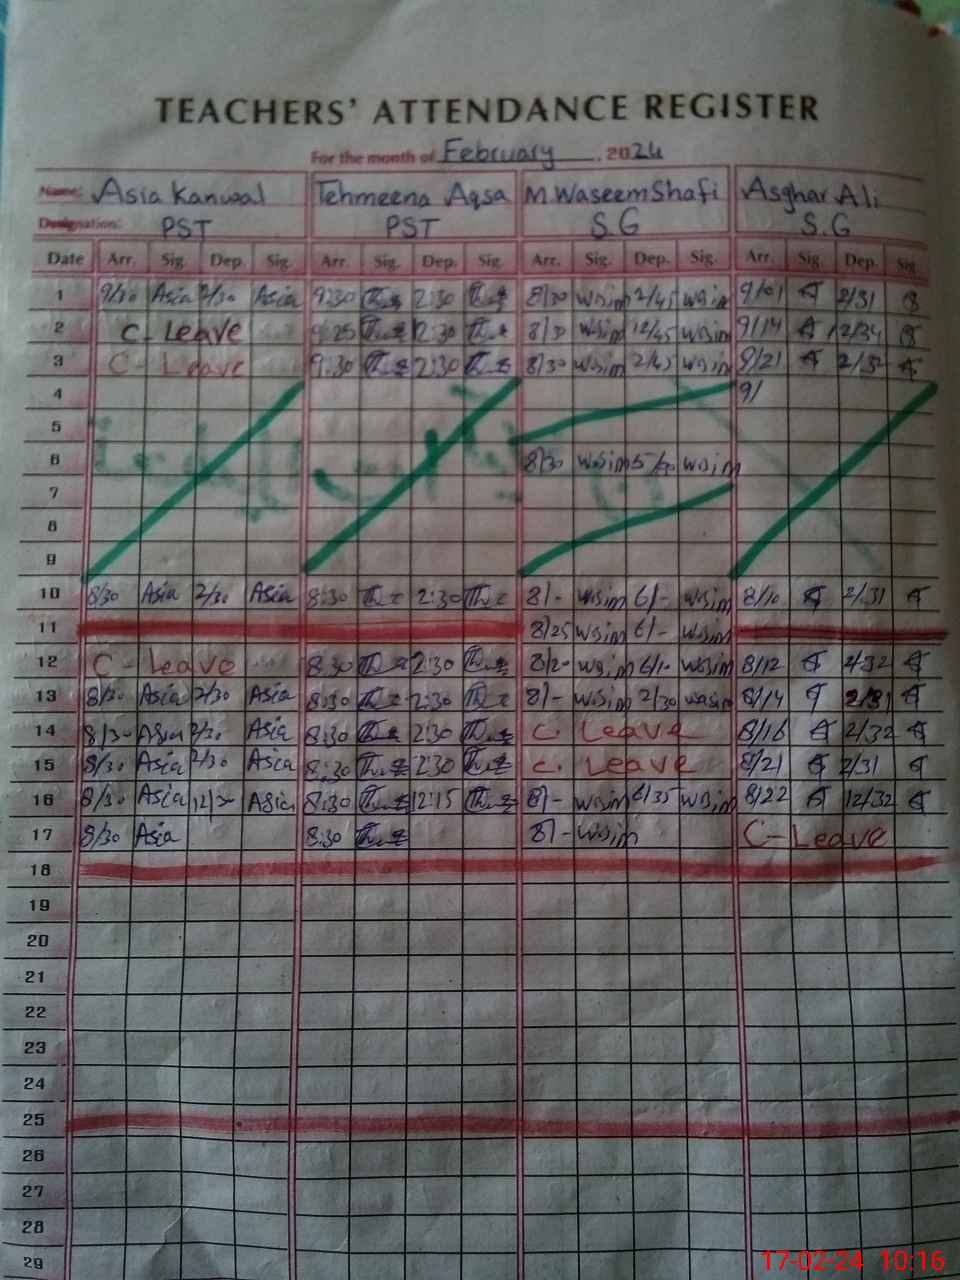 TEACHERS' ATTENDANCE REGISTER
For the month of February, 2024
Name: Asia Kanwal Tehmeena Aqsa M. Waseem Shafi Asghar Ali
Designation: PST PST S.G S.G
Date Arr. Sig. Dep. Sig. Arr. Sig. Dep. Sig. Arr. Sig. Dep. Sig. Arr. Sig. Dep. Sig.
1 9/30 Asia 2/30 Asia 9:30 2:30 8/30 wasim 2/45 wasim 9/01 2/31
2 C- Leave 9:25 12:30 8/30 wasim 12/45 wasim 9/14 12/34
3 C- Leave 9:30 2:30 8/30 wasim 2/45 wasim 9/21 2/32
4 9/
5
6 8/30 wasim wasim
7
8
9
10 8/30 Asia 2/30 Asia 8:30 2:30 8/- wasim 6/- wasim 8/10 2/31
11 8/25 wasim 6/- wasim
12 C- Leave 8:30 2:30 wasim wasim 8/12 2/32
13 8/30 Asia 2/30 Asia 8:30 2:30 8/- wasim 2/30 wasim 8/14 2/31
14 8/30 Asia 2/30 Asia 8:30 2:30 C. Leave 8/16 2/32
15 8/30 Asia 2/30 Asia 8:30 2:30 C. Leave 8/21 2/31
16 8/30 Asia Asia 8:30 12:15 8/- wasim 6/35 wasim 8/22 12/32
17 8/30 Asia 8:30 8/- wasim C-Leave
18
19
20
21
22
23
24
25
26
27
28
29
17-02-24 10:16